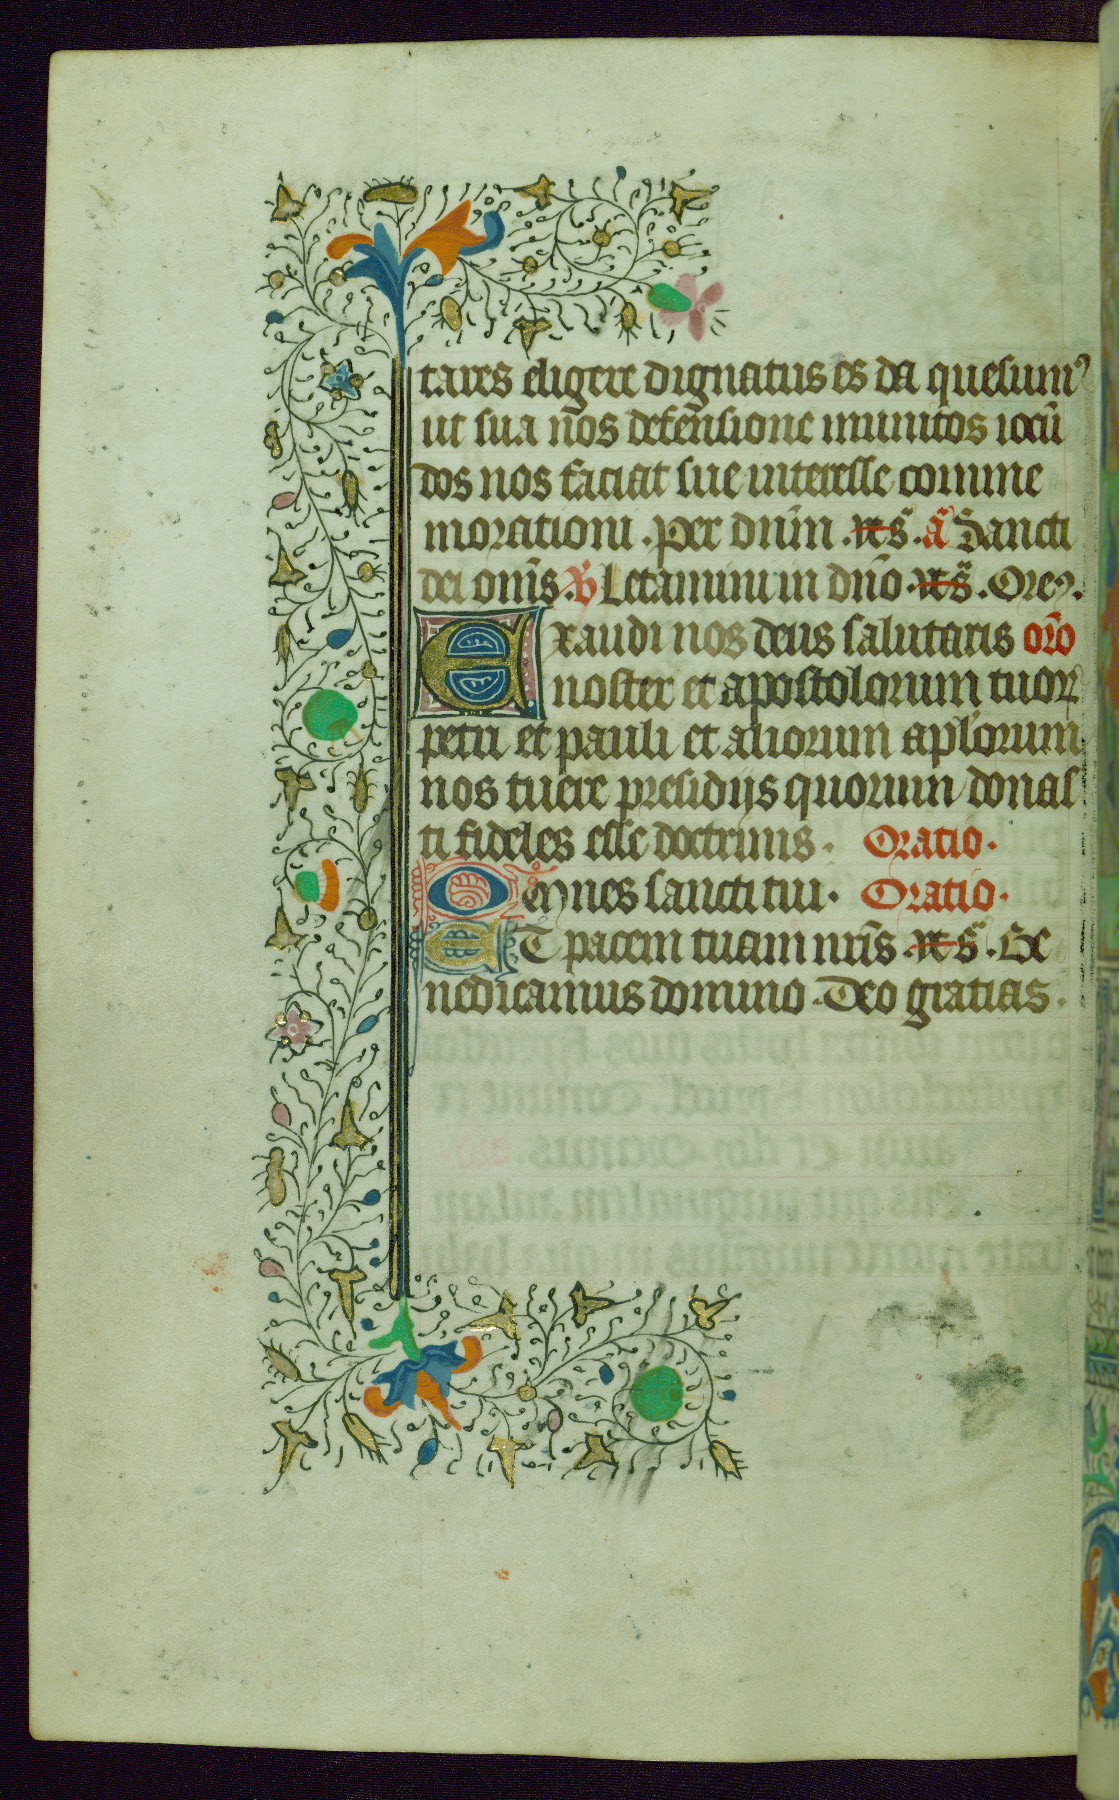 tares eligere dignatus es da quesumꝰ
ut sua nōs defēnsione munitos iocū
dos nos faciat sue interesse comme
morationi . per dn̄m . xc̄s . a᷑ Sancti
dei om̄s . ℣ Letamini in dn̄o . xc̄s . Oreꝰ .
Exaudi nos deus salutaris or̄o
noster et apostolorum tuoꝝ
petri et pauli et aliorum apl'orum
nos tuere presidijs quorum donas
ti fideles esse doctrinis . Oratio .
Omnes sancti tui . Oratio .
ET pacem tuam nr̄is . xc̄s . Be
nedicamus domino . Deo gratias .